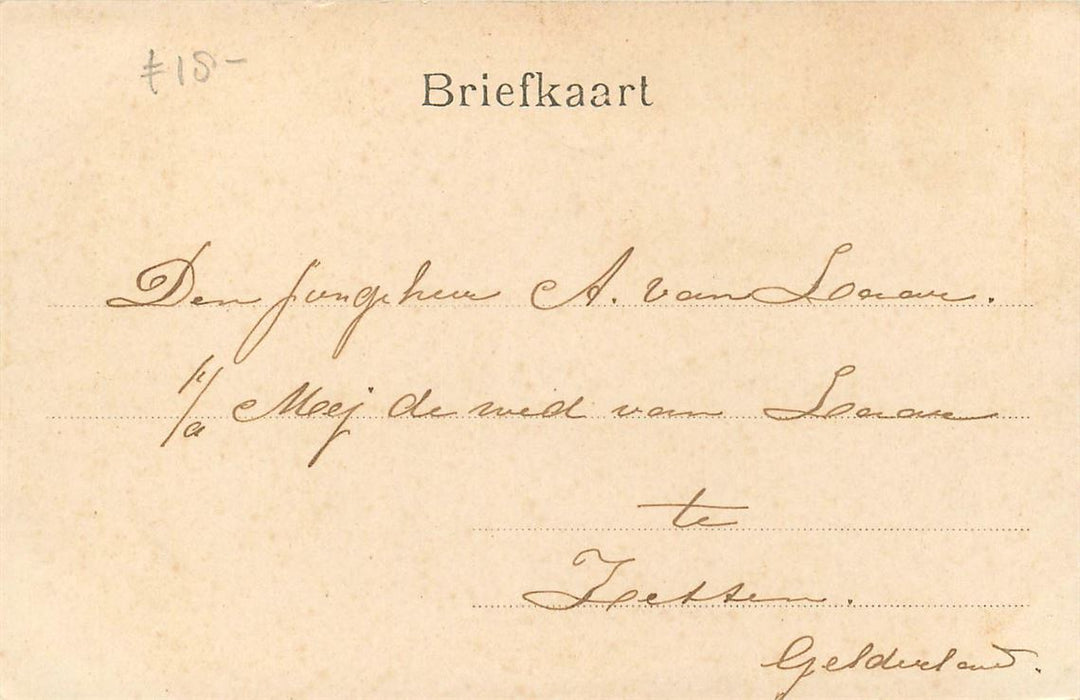 ƒ 18-
Briefkaart
Den jongeheer A. van Laar.
p/a Mej de wed van Laar
te
Zetten.
Gelderland.